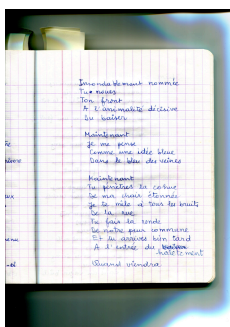 Insondablement nommée
Tu noues
Ton front
A l'animalité décisive
Du baiser
Maintenant
Je me pense
Comme une idée bleue
Dans le bleu des veines
Maintenant
Tu pénètres la cohue
De ma chair étonnée
Je te mêle à tous les bruits
De la rue
Tu fais la ronde
De notre peur commune
Et tu arrives bien tard
A l'entrée du halètement
Quand viendra